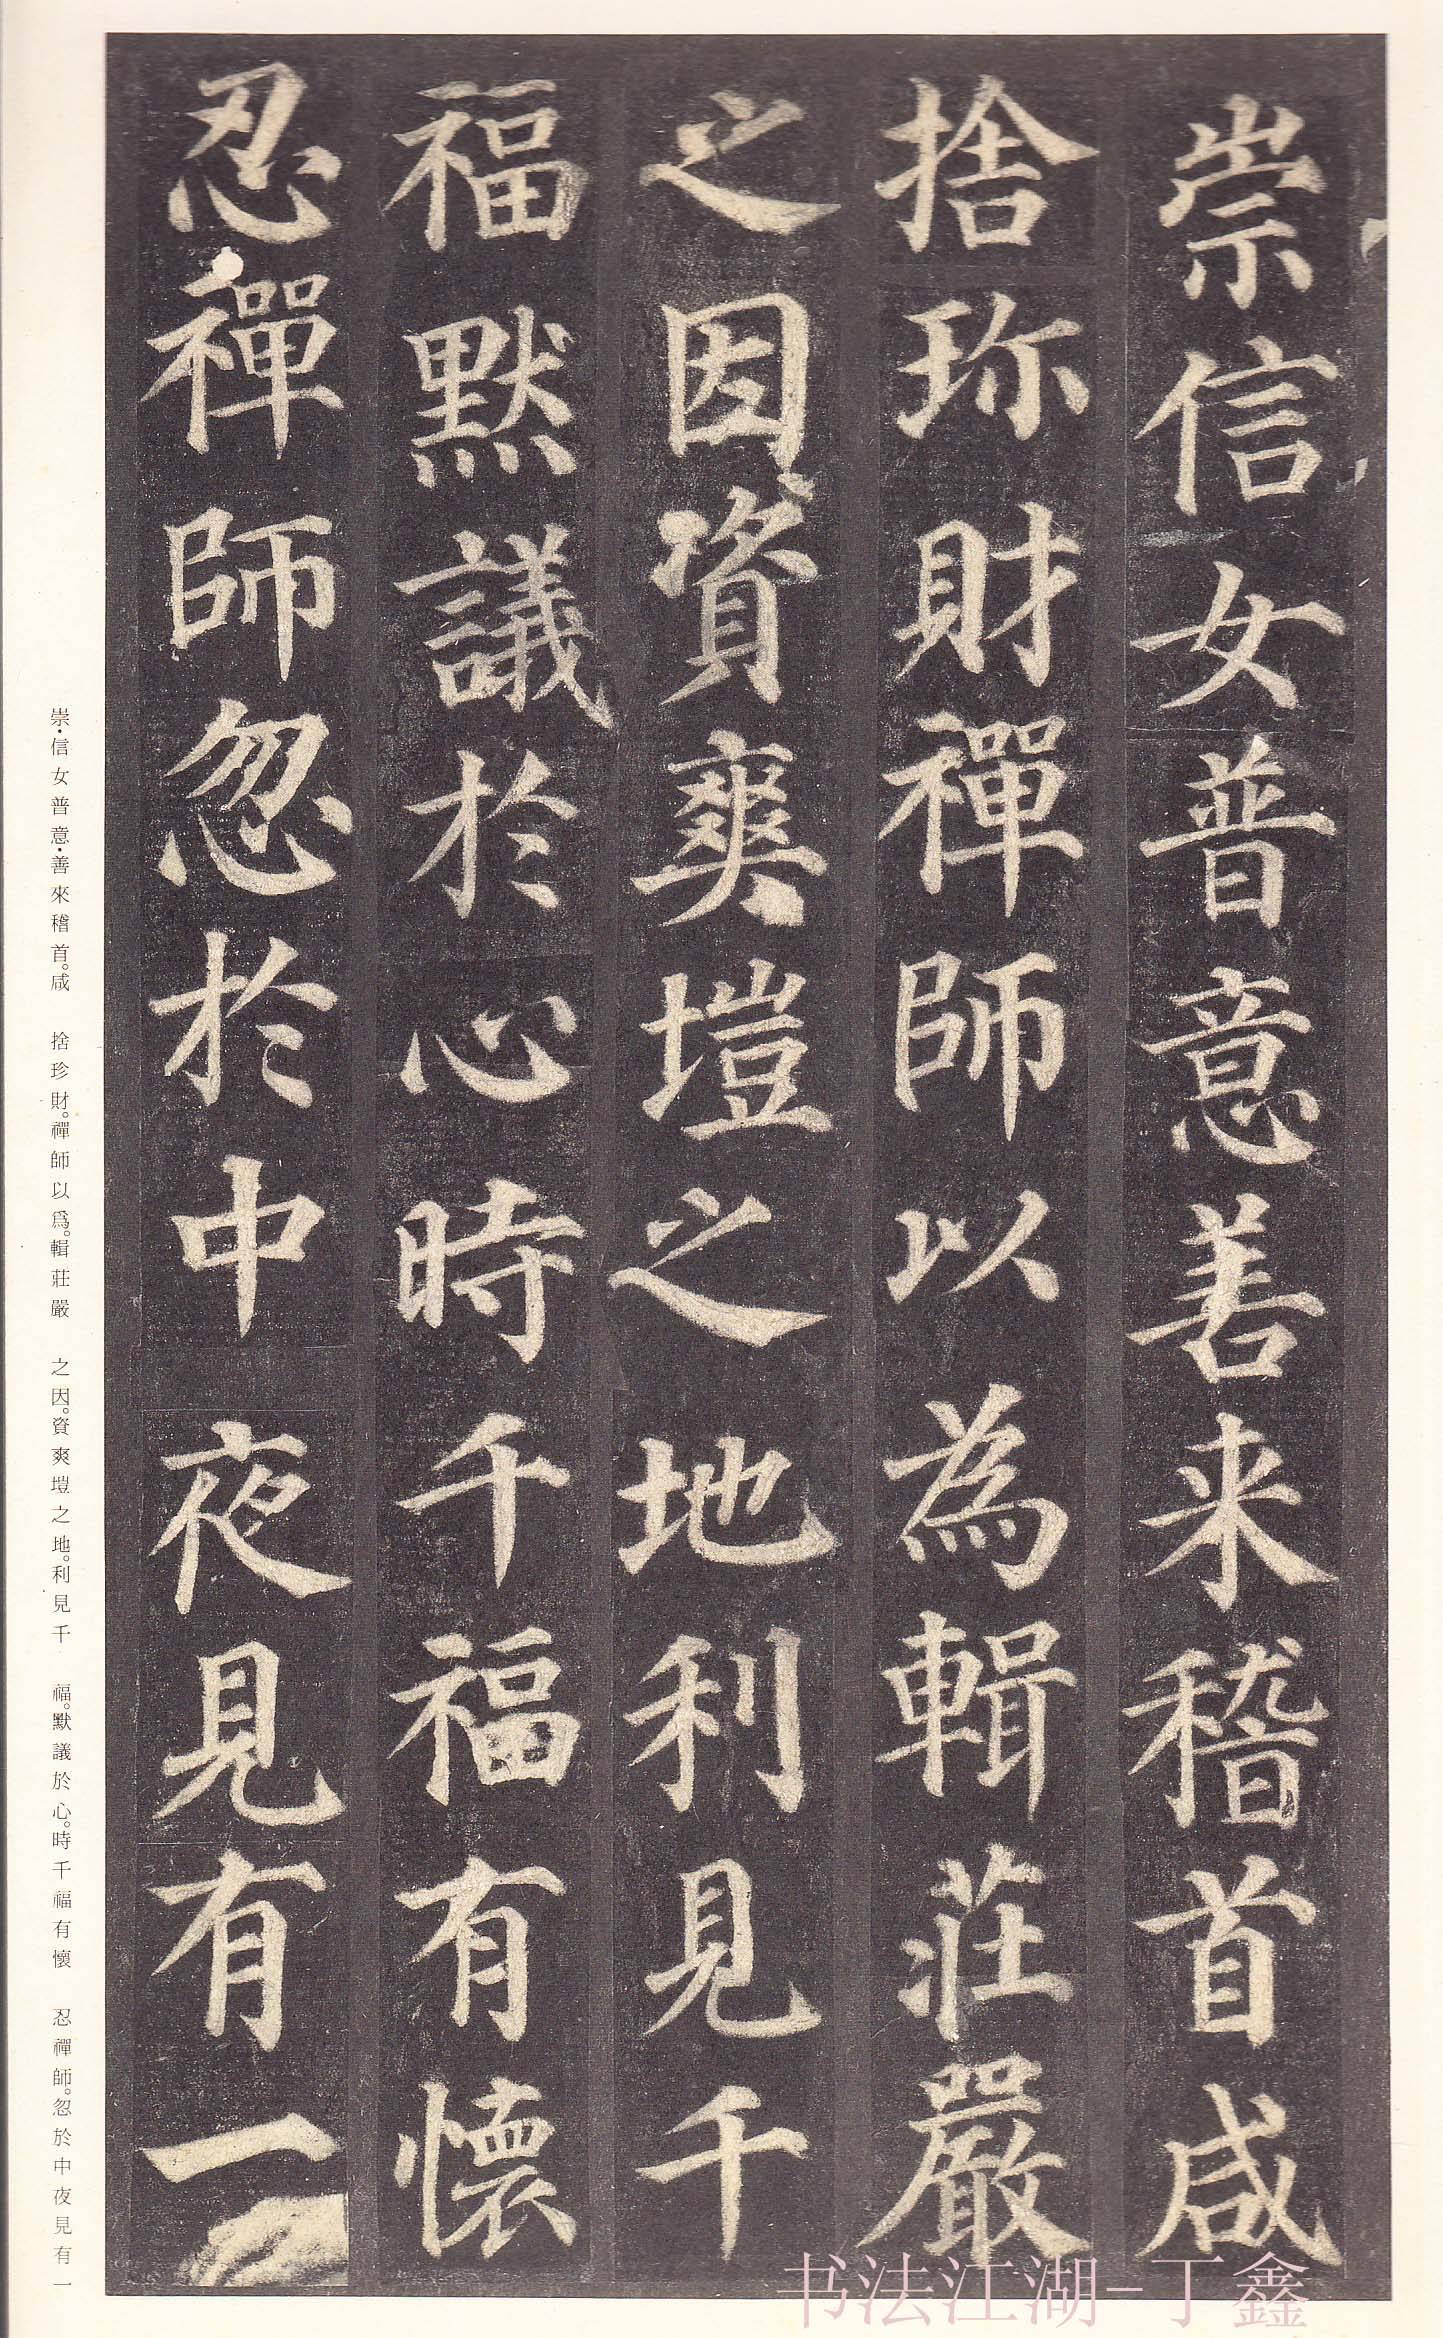 崇信女普意善来稽首咸
捨珎財禪師以為輯莊嚴
之因資爽塏之地利見千
福默議於心時千福有懷
忍禪師忽於中夜見有一
崇・信女普意・善來稽首。咸　捨珍財。禪師以爲。輯莊嚴　之因。資爽塏之地。利見千　福。默議於心。時千福有懷　忍禪師。忽於中夜見有一
书法江湖-丁鑫